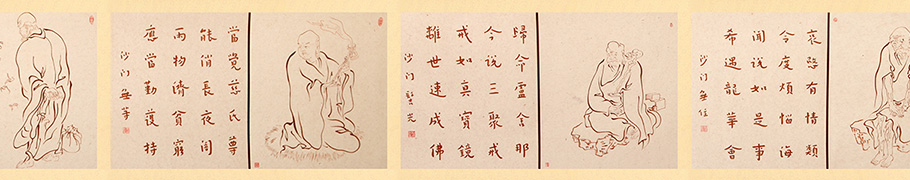 哀愍有情類
令度煩惱海
聞說如是事
希遇龍華會
沙门無住
歸命盧舍那
今說三聚戒
戒如真寶鏡
離世速成佛
沙门
當覺慈氏尊
能消長夜闇
雨物濟貧窮
應當勤護持
沙门無等